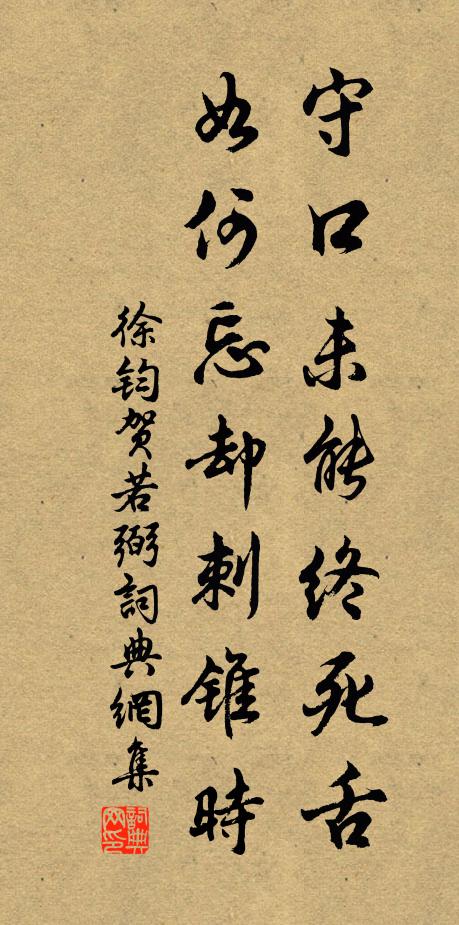 守口未能終死舌
如何忘却刺錐時
徐鈞賀若弼詞典網集
詞典网印